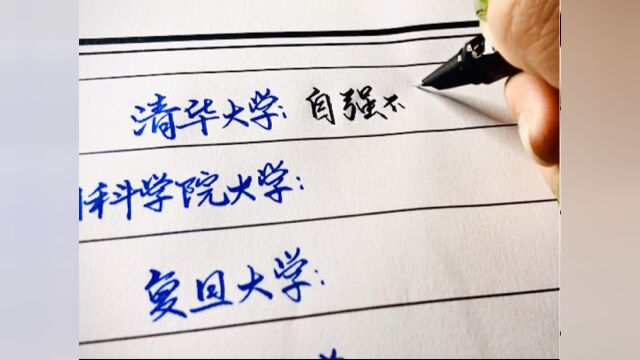 清华大学：自强不
科学院大学：
复旦大学：